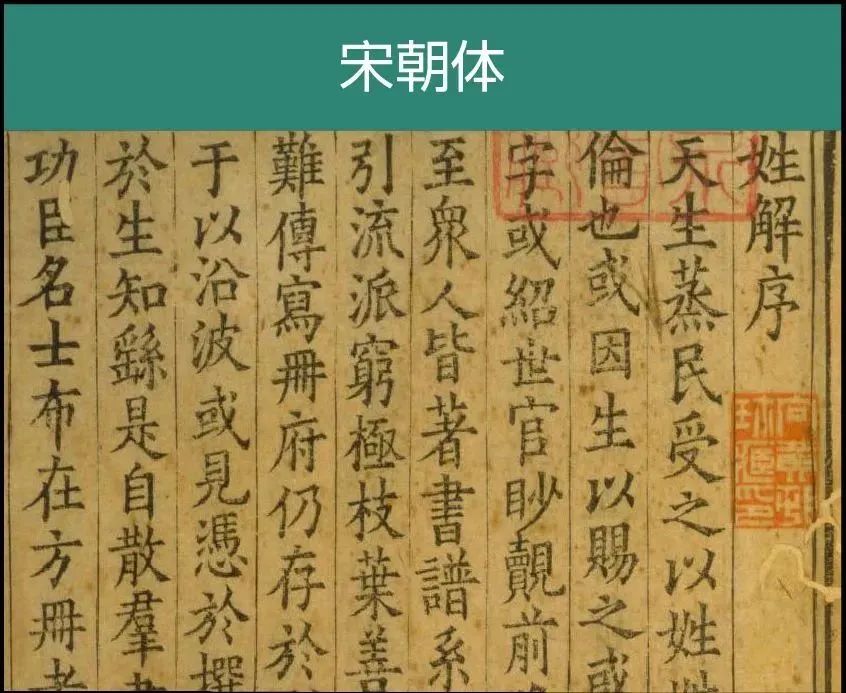 宋朝体
姓解序
天生蒸民受之以姓
倫也或因生以賜之或
字或紹世官眇覿前
至衆人皆著書譜系
引流派窮極枝葉善
難傳寫冊府仍存於
于以沿波或見憑於撰
於生知繇是自散羣
功臣名士布在方冊者
向黃邨珍藏印